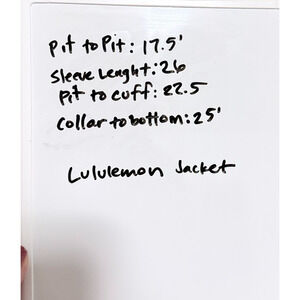 Pit to Pit: 17.5'
Sleeve Lenght: 26
Pit to cuff: 22.5
Collar to bottom: 25'
Lululemon Jacket